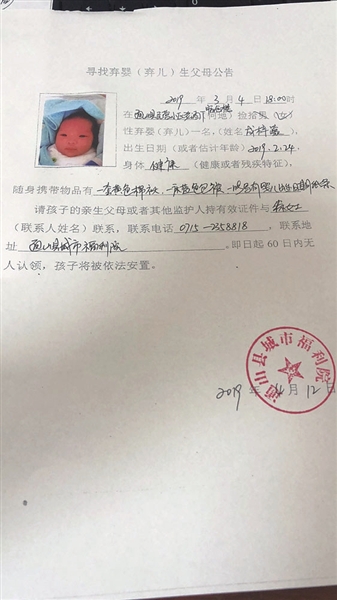 寻找弃婴（弃儿）生父母公告
2019 年 3 月 4 日 18:00时
在 通山县 （地）捡拾男（女）
性弃婴（弃儿）一名，（姓名
出生日期（或者估计年龄）2019.2.24，
身体 健康 （健康或者残疾特征），
随身携带物品有
请孩子的亲生父母或者其他监护人持有效证件与
（联系人姓名）联系，联系电话 0715-2358818，联系地
址 通山县城市福利院。即日起 60 日内无
人认领，孩子将被依法安置。
通山县城市福利院
2019 年 4 月 12 日